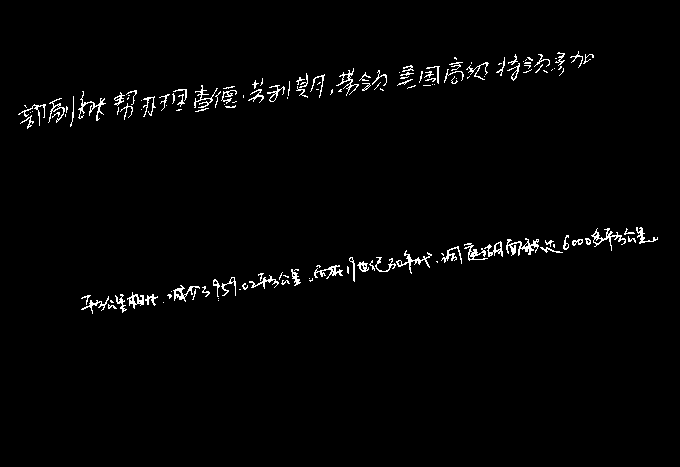 部副秘帮办理查德·劳利期,带领美国高级将领参加
平方公里相比,减少了959.02平方公里。而在19世纪30年代,洞庭湖面积达6000多平方公里。